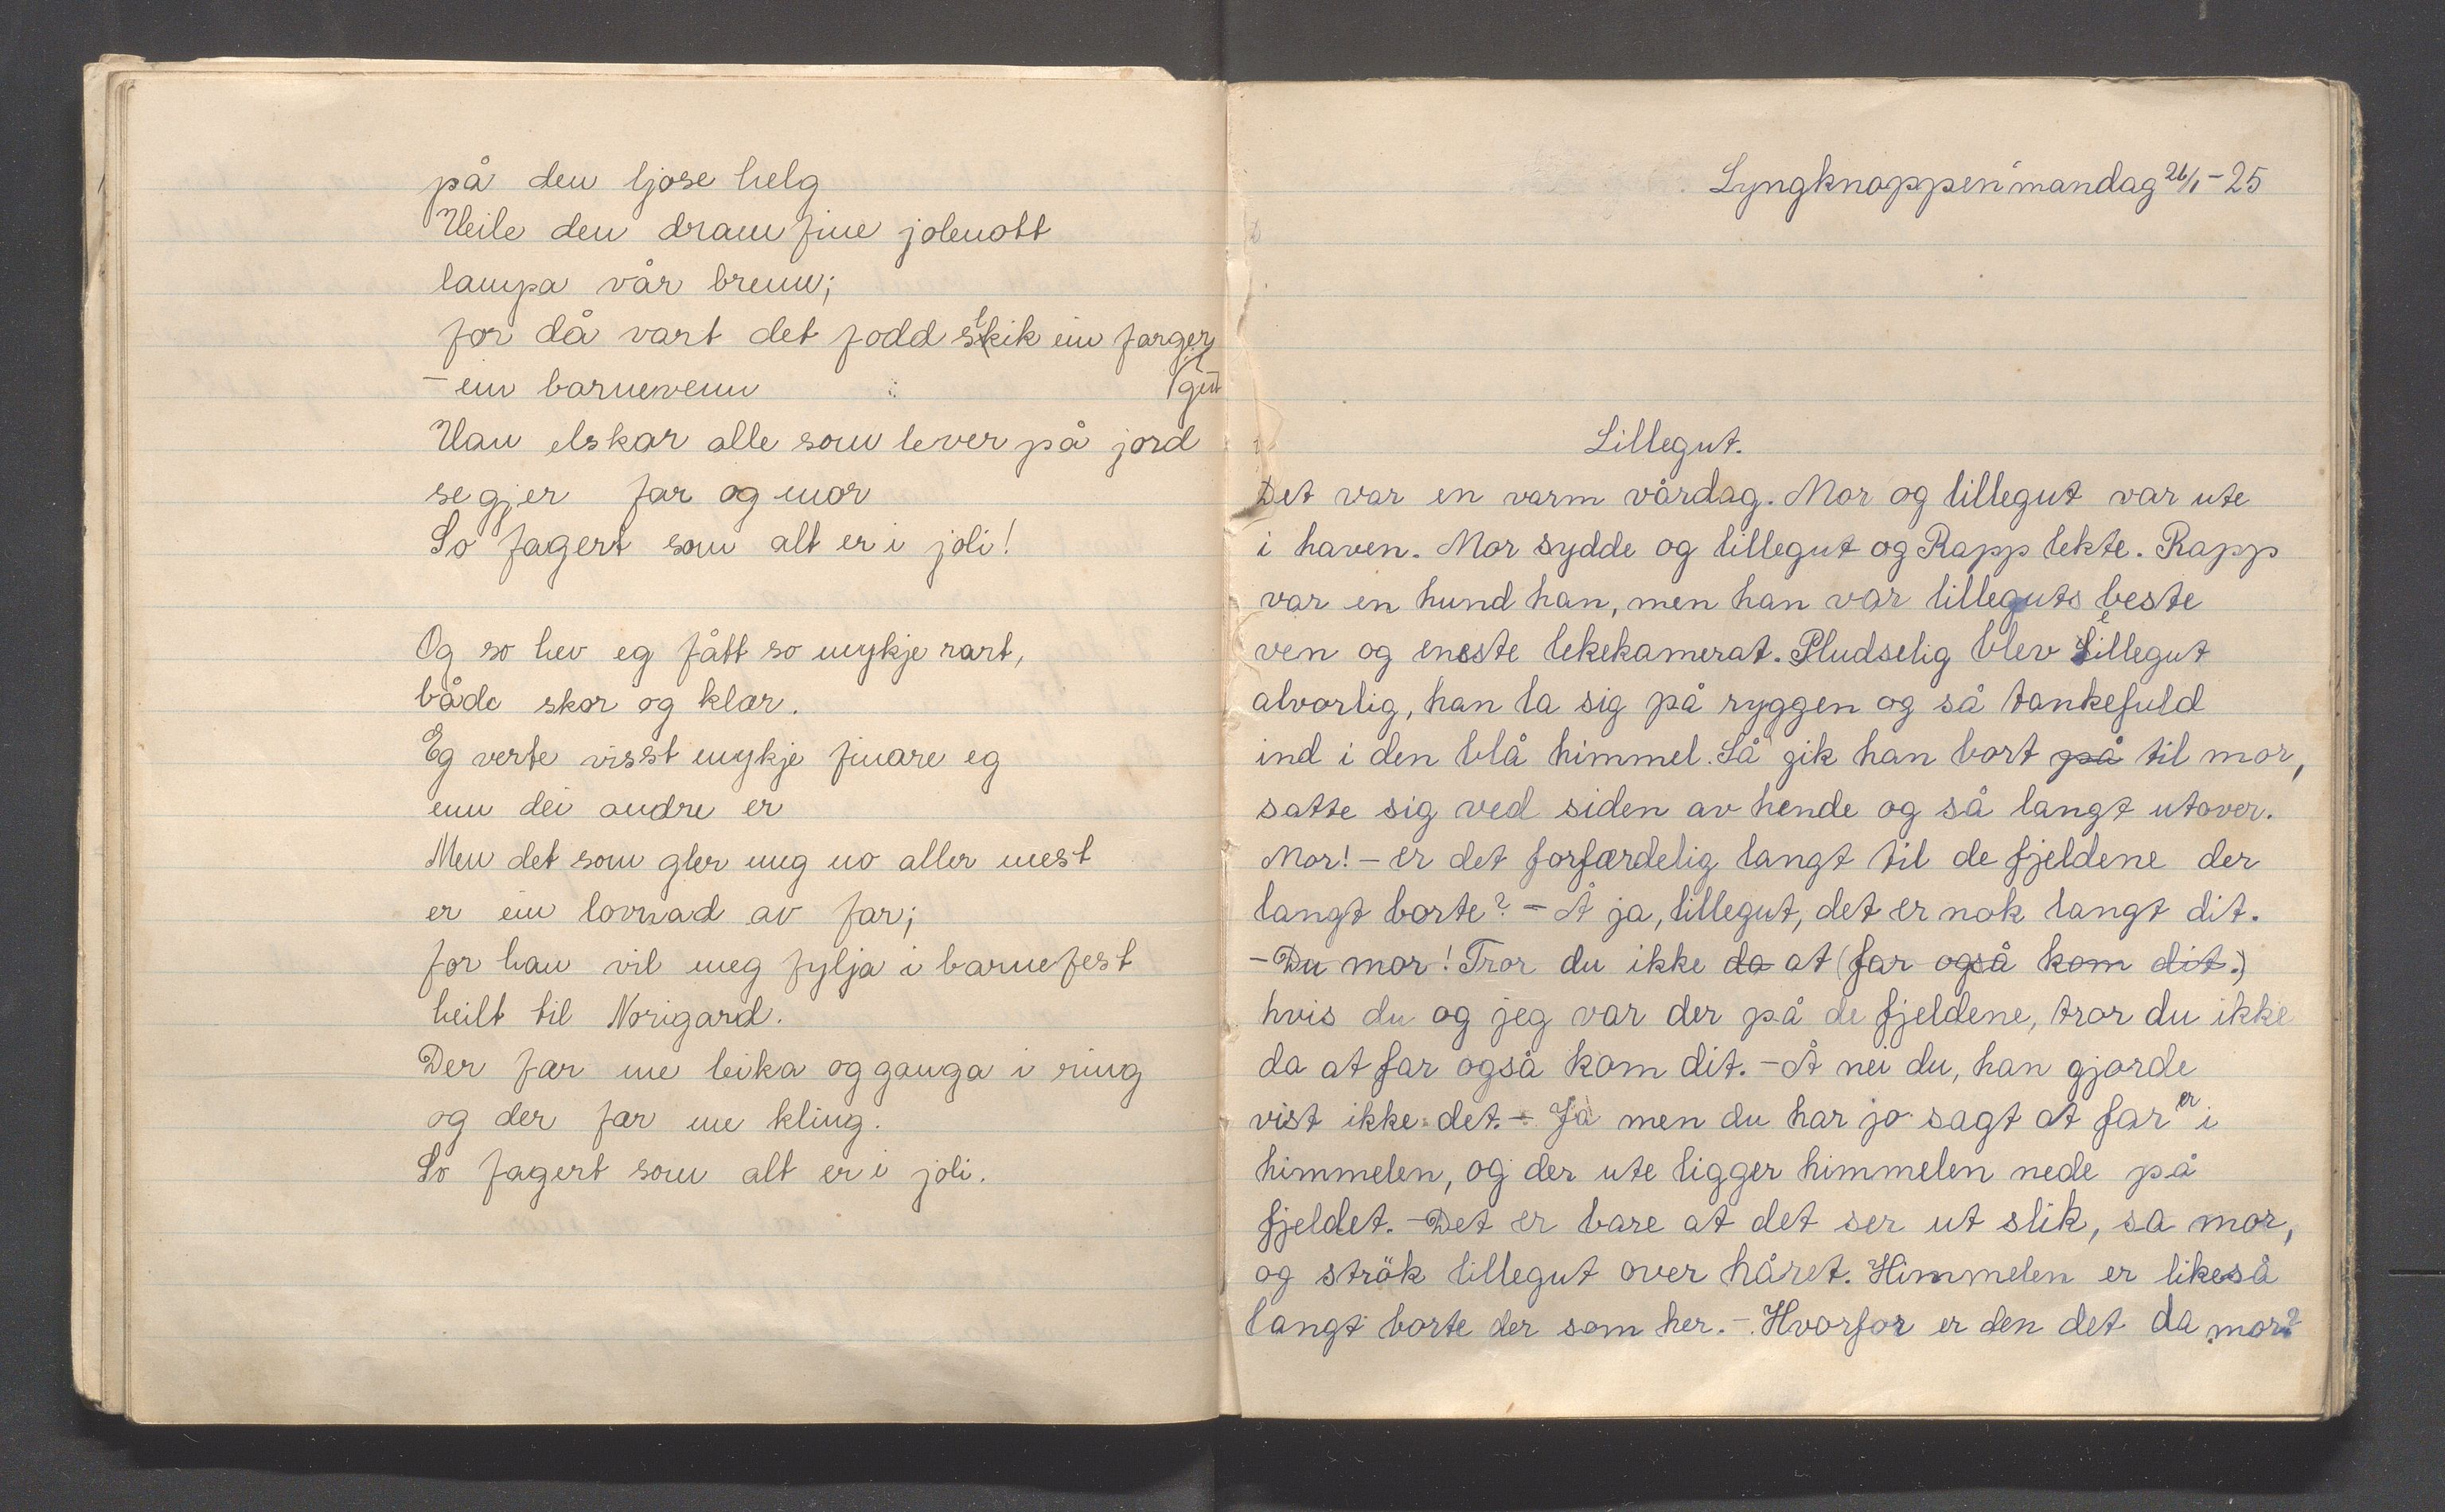 på den ljose helg
Heile den draumfine jolenott
lampa vår brenn;
for då vart det fodd slik ein farger
(gut
– ein barnevenn
Han elskar alle som lever på jord
segjer far og mor
So fagert som alt er i joli!
Og so hev eg fått so mykje rart,
både skor og klær.
Eg verte visst mykje finare eg
enn dei andre er
Men det som gler meg no aller mest
er ein lovnad av far;
for han vil meg fylja i barnefest
heilt til Norigard.
Der fær me leika og ganga i ring
og der fær me kling.
So fagert som alt er i joli.
Lyngknoppen mandag 26/1 – 25
Lillegut.
Det var en varm vårdag. Mor og lillegut var ute
i haven. Mor sydde og lillegut og Rapp lekte. Rapp
var en hund han, men han var lilleguts beste
ven og eneste lekekamerat. Pludselig blev lillegut
alvorlig, han la sig på ryggen og så tankefuld
ind i den blå himmel. Så gik han bort på til mor,
satte sig ved siden av hende og så langt utover.
Mor! – er det forfærdelig langt til de fjeldene der
langt borte? – Å ja, lillegut, det er nok langt dit.
– Du mor! Tror du ikke da at (far også kom dit.)
hvis du og jeg var der på de fjeldene, tror du ikke
da at far også kom dit. – Å nei du, han gjorde
vist ikke det. – Ja men du har jo sagt at far er i
himmelen, og der ute ligger himmelen nede på
fjeldet. – Det er bare at det ser ut slik, sa mor,
og strök lillegut over håret. Himmelen er likeså
langt borte der som her. – Hvorfor er den det da mor?